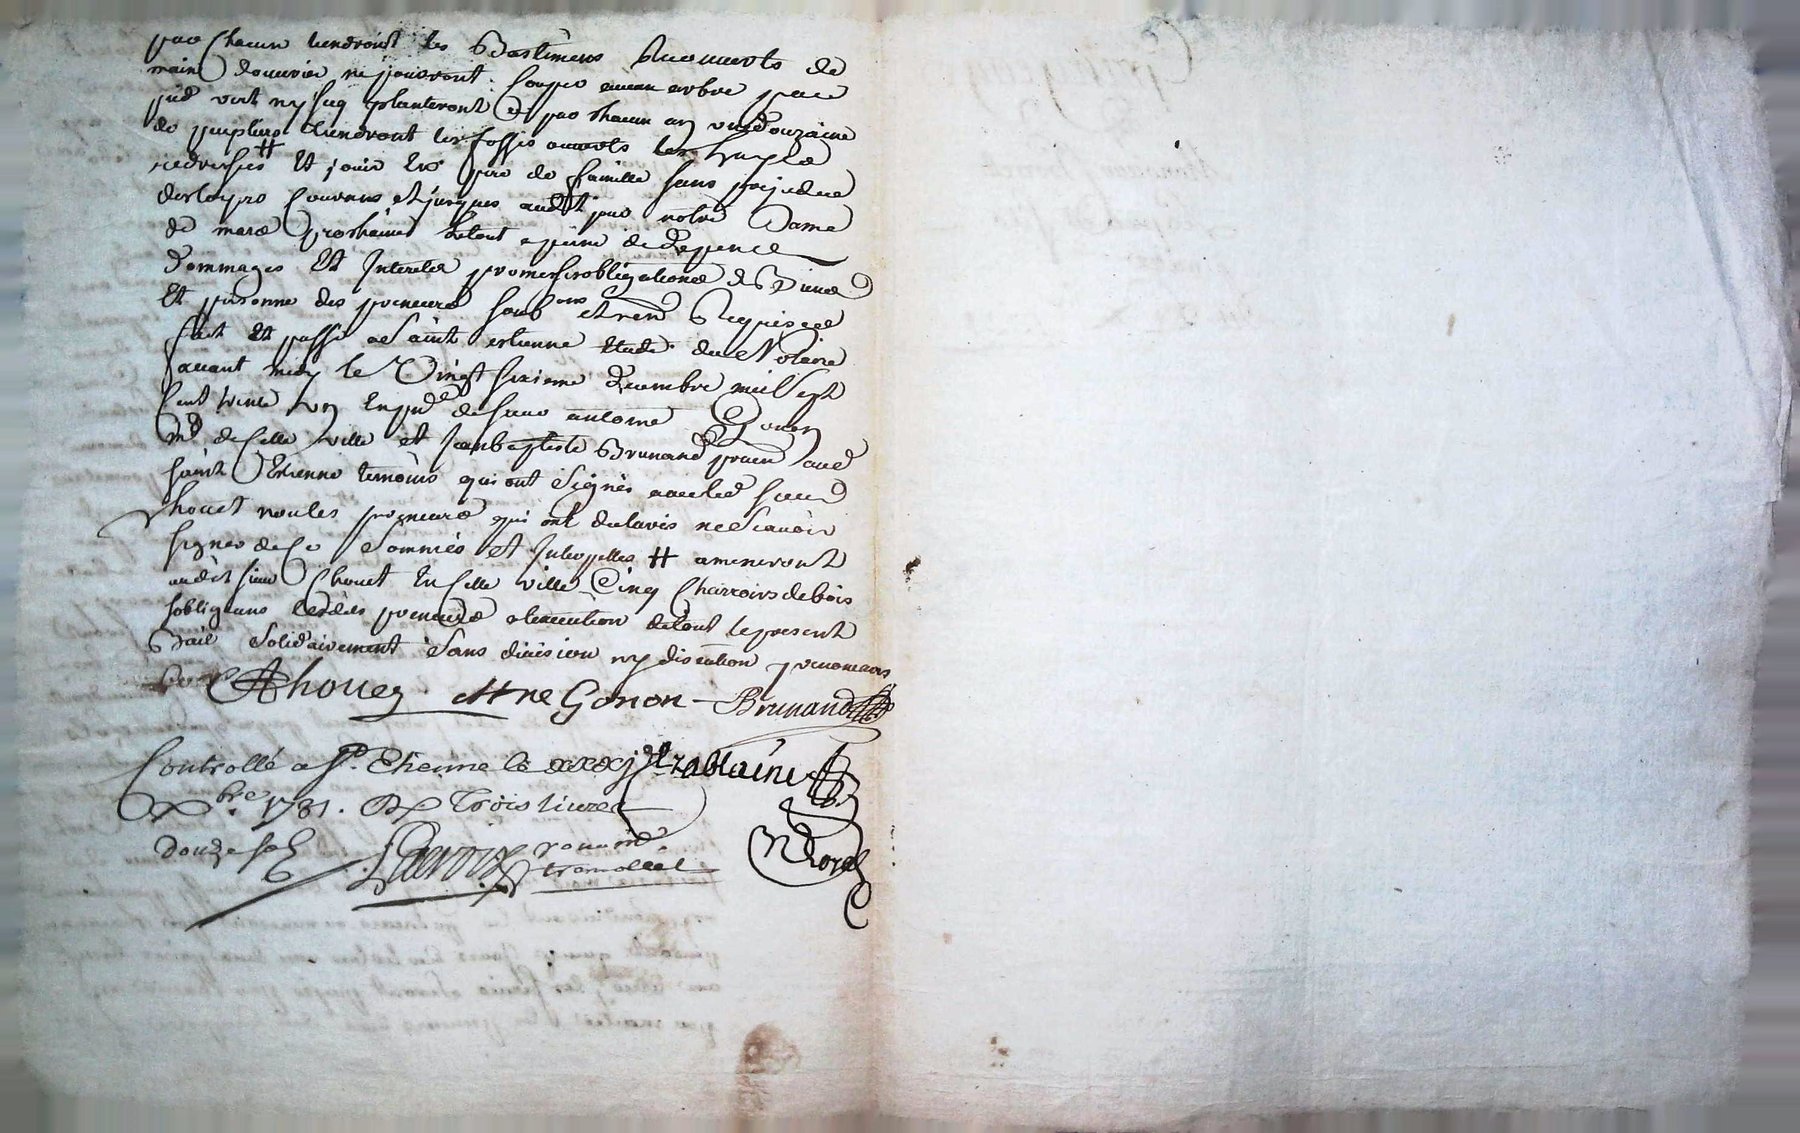 par chacun tiendront les Bastimens Recouverts de
main d'ouvrier ne pouvront couper aucun arbre par
pied vert ny secq planteront par chacun an une douzaine
de peupliers tiendront les fossés ouverts les
# Et jouir En pere de famille sans prejudice
des loyers Courans et jusques audit jour notre Dame
de mars prochaine le tout a peine de Depence
Dommages Et Interets promesses obligations de Biens
Et personne des preneurs soub ons et ren Requises
fait Et passé a Saint estienne Etude du Notaire
avant midy le Vingt sixieme decembre mil Sept
Cent trente un En pnce de sieur antoine Gonon
md de cette ville et Jean baptiste Brunand praen aud
saint Etienne temoins qui ont Signés avec led sieur
Chouet non les preneurs qui ont declarés ne Scavoir
signer de Ce Sommés et Interpellés # ameneront
audit sieur Chouet En cette ville Cinq Charroirs de bois
sobligeans lesdits preneurs a lexecution de tout le present
Bail Solidairement Sans division ny discution
Chouet Ane Gonon Brunand
Controllé a St. Etienne le xxxj
Xbre. 1731. Rx Trois livres
Douze sols